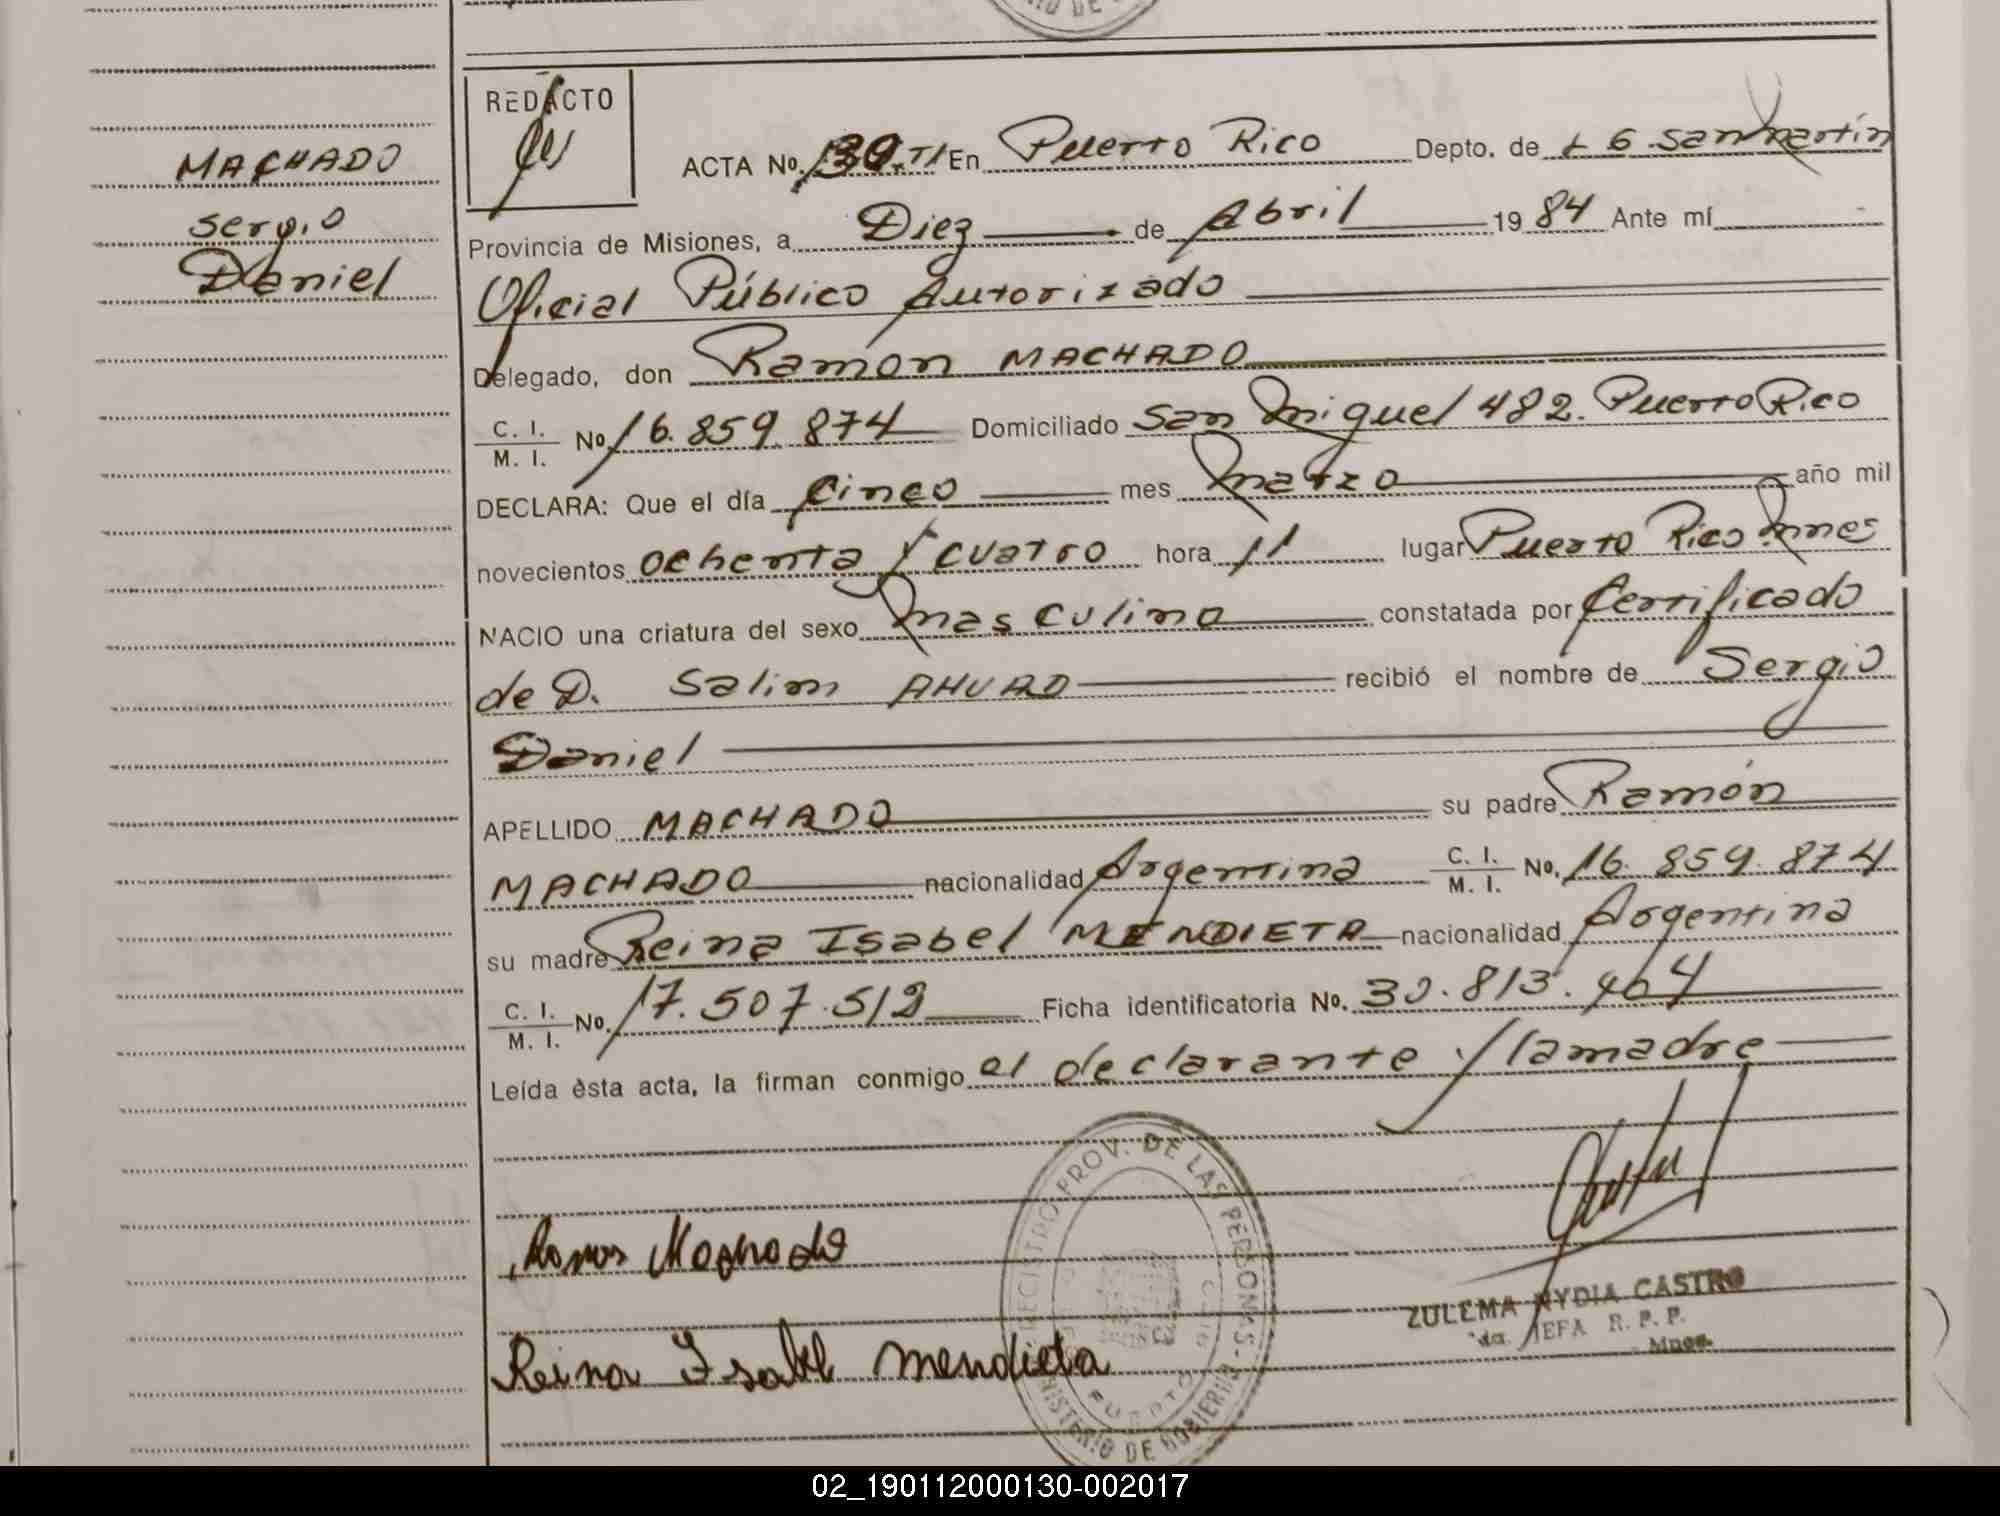 RIO DE
REDACTO
ACTA No. 130. TI En Puerto Rico Depto. de L G. San Martín
MACHADO
Sergio
Daniel
Provincia de Misiones, a Diez de Abril 19 84 Ante mí
Oficial Público Autorizado
Delegado, don Ramón MACHADO
C. I.
M. I. No. 16.859.874 Domiciliado San Miguel 482. Puerto Rico
DECLARA: Que el día cinco mes marzo año mil
novecientos ochenta y cuatro hora 11 lugar Puerto Rico Mnes
NACIO una criatura del sexo masculino constatada por Certificado
de D. Salim AHUAD recibió el nombre de Sergio
Daniel
APELLIDO MACHADO su padre Ramón
MACHADO nacionalidad Argentina C. I. M. I. No. 16.859.874
su madre Reina Isabel MENDIETA nacionalidad Argentina
C. I.
M. I. No. 17.507.512 Ficha identificatoria No. 30.813.464
Leída èsta acta, la firman conmigo el declarante y la madre
REGISTRO PROV. DE LAS PERSONAS
MINISTERIO DE GOBIERNO
PUERTO
Ramon Machado
Reina Isabel Mendieta
ZULEMA NYDIA CASTRO
JEFA R. P. P.
Mnes.
02_190112000130-002017